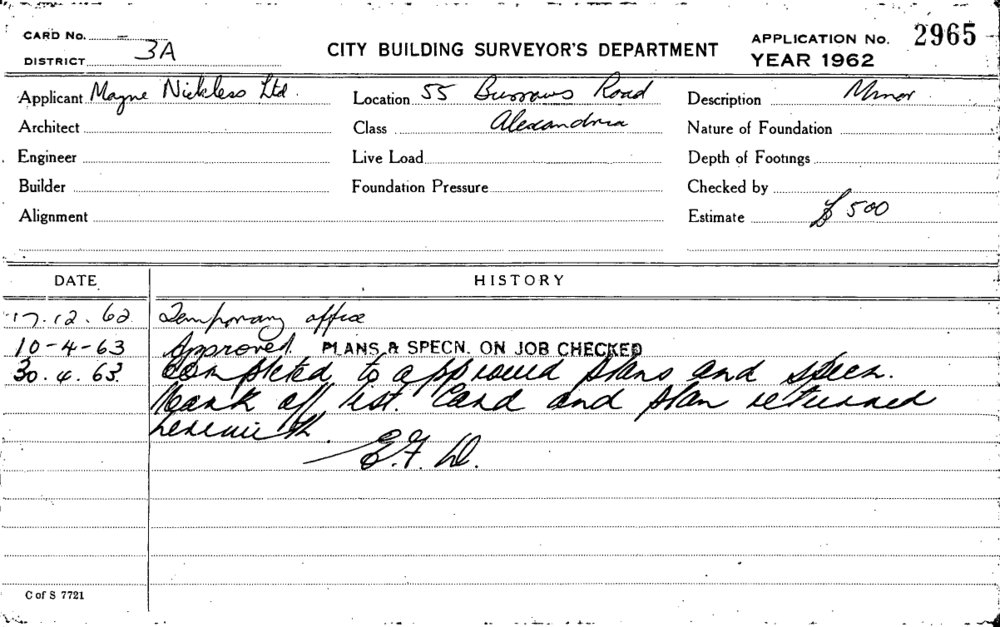 CARD No. -
DISTRICT 3A
CITY BUILDING SURVEYOR'S DEPARTMENT
APPLICATION No. 2965
YEAR 1962
Applicant Mayne Nickless Ltd.
Location 55 Burrows Road
Description Minor
Architect
Class Alexandria
Nature of Foundation
Engineer
Live Load
Depth of Footings
Builder
Foundation Pressure
Checked by
Alignment
Estimate £ 500
DATE
HISTORY
17.12.62 Temporary office
10-4-63 Approved. PLANS & SPECN. ON JOB CHECKED
30.4.63. Completed to approved plans and specn.
Mark off list. Card and plan returned
herewith.
E.F.
C of S 7721